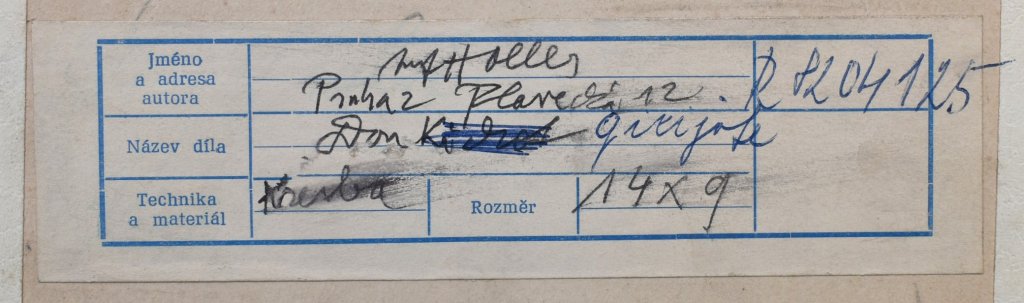 Jméno
a adresa
autora
Holler
Praha 2 Plavecká 12. R 8204125
Název díla
Don Quijote
Technika
a materiál
Kresba
Rozměr
14 x 9